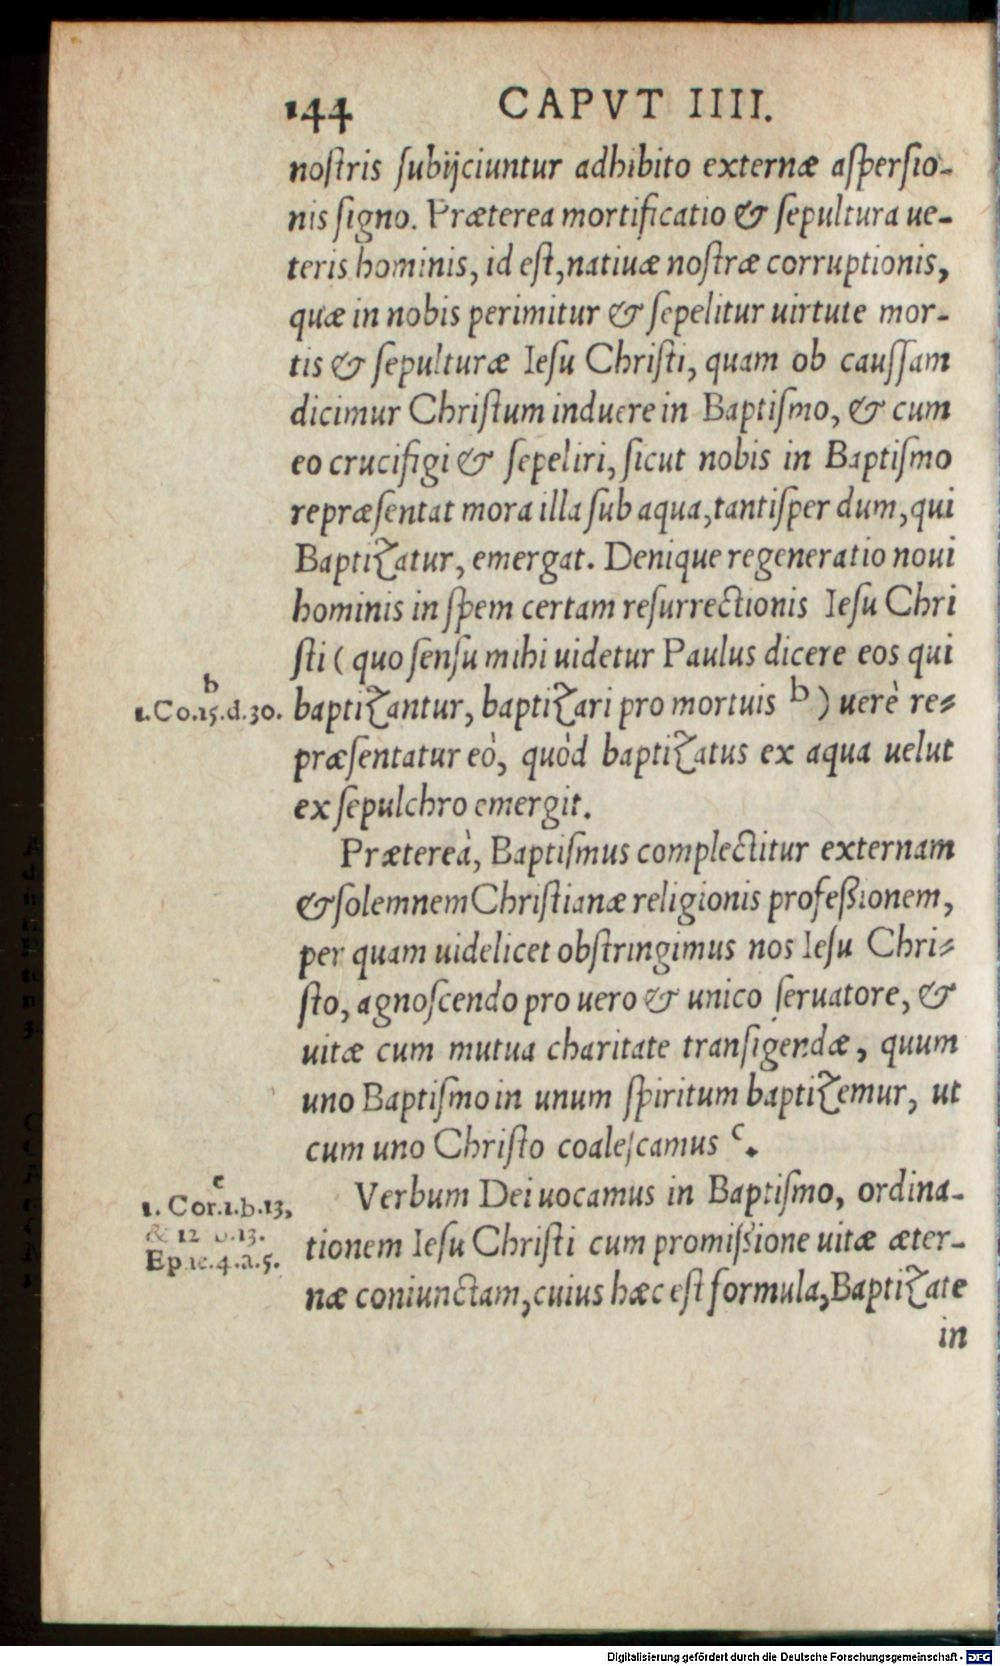 144 CAPVT IIII.
nostris subijciuntur adhibito externæ aspersio-
nis signo. Præterea mortificatio & sepultura ue-
teris hominis, id est, natiuæ nostræ corruptionis,
quæ in nobis perimitur & sepelitur uirtute mor-
tis & sepulturæ Iesu Christi, quam ob caussam
dicimur Christum induere in Baptismo, & cum
eo crucifigi & sepeliri, sicut nobis in Baptismo
repræsentat mora illa sub aqua, tantisper dum, qui
Baptizatur, emergat. Denique regeneratio noui
hominis in spem certam resurrectionis Iesu Chri
sti ( quo sensu mihi uidetur Paulus dicere eos qui
b
1.Co.15.d.30.
baptizantur, baptizari pro mortuis b ) uerè re-
præsentatur eò, quòd baptizatus ex aqua uelut
ex sepulchro emergit.
Prætereà, Baptismus complectitur externam
& solemnem Christianæ religionis professionem,
per quam uidelicet obstringimus nos Iesu Chri-
sto, agnoscendo pro uero & unico seruatore, &
uitæ cum mutua charitate transigendæ, quum
uno Baptismo in unum spiritum baptizemur, ut
cum uno Christo coalescamus c.
c
1. Cor.1.b.13,
& 12 b.13.
Ephe.4.a.5.
Verbum Dei uocamus in Baptismo, ordina-
tionem Iesu Christi cum promissione uitæ æter-
næ coniunctam, cuius hæc est formula, Baptizate
in
Digitalisierung gefördert durch die Deutsche Forschungsgemeinschaft - DFG